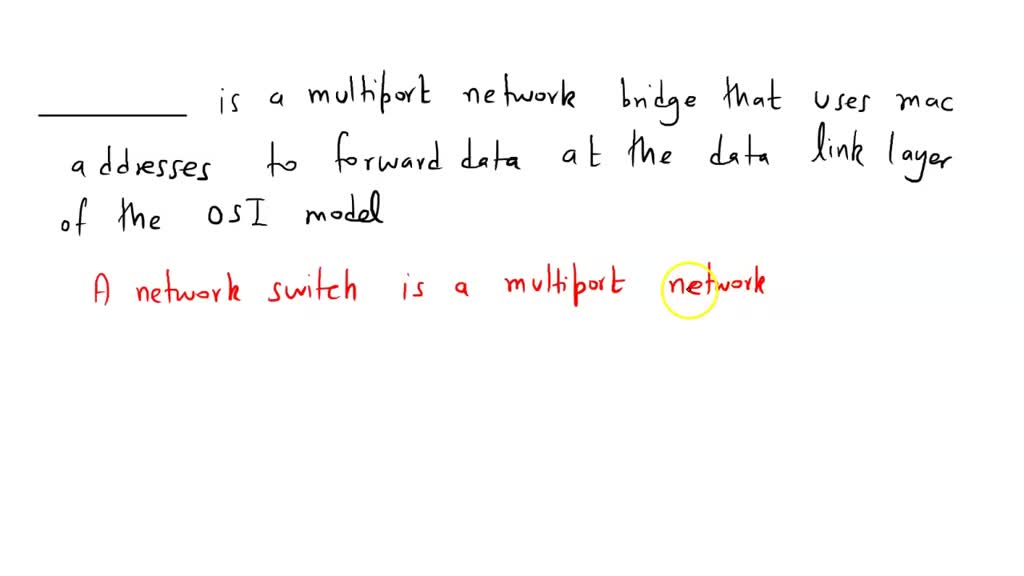 ________ is a multiport network bridge that uses mac
addresses to forward data at the data link layer
of the OSI model
A network switch is a multiport network